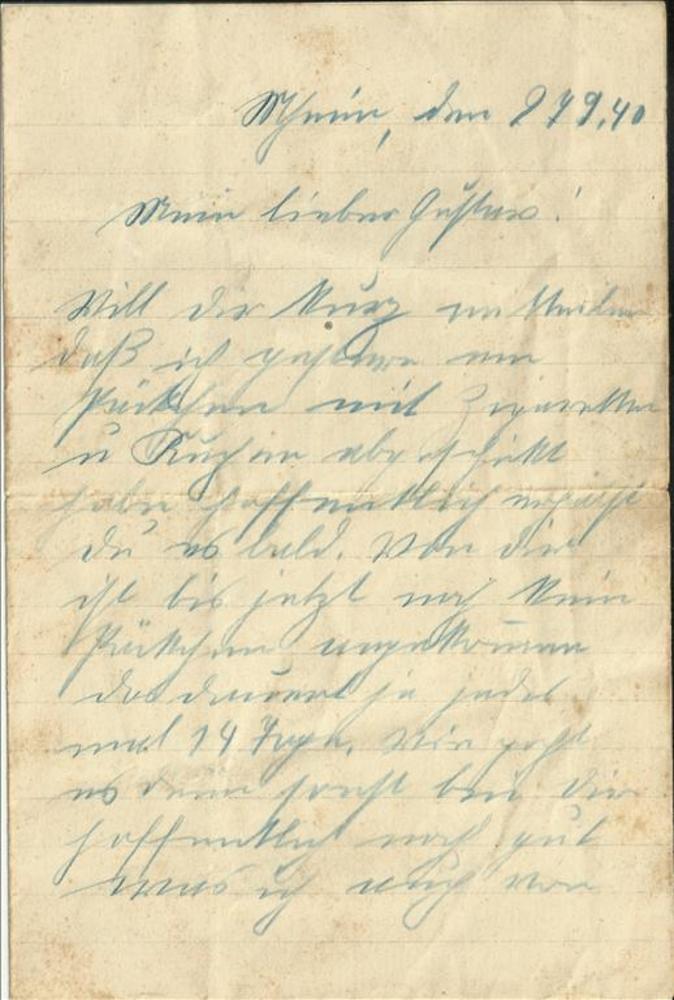 den 27 9. 40
Mein lieber Gustav!
Will dir kurz mitteilen
daß ich gestern ein
Päckchen mit Zigaretten
u Kuchen abgeschickt
habe hoffentlich
du es bald. Von dir
ist bis jetzt noch kein
Päckchen angekommen
das dauert ja jedes
mal 14 Tage. Wie geht
es denn sonst bei dir
hoffentlich noch gut
was ich auch von